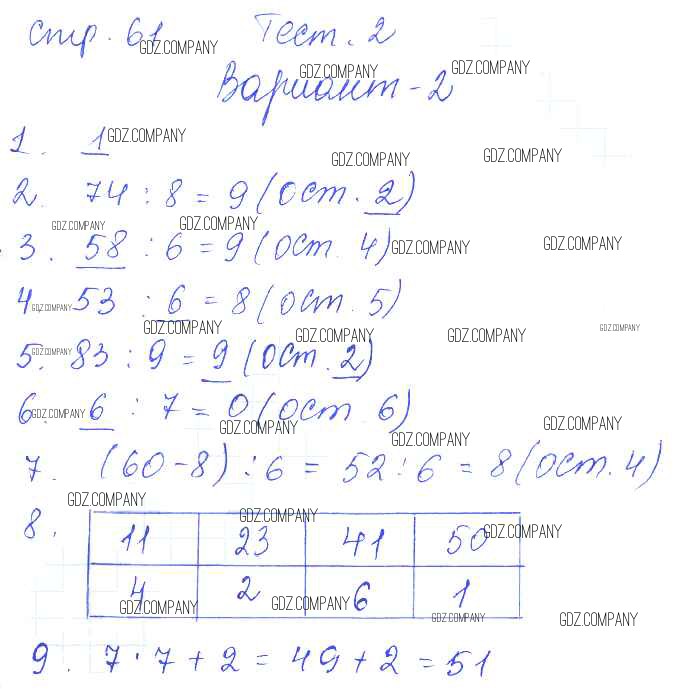 стр. 61 Тест. 2
Вариант - 2
1. 1
2. 74 : 8 = 9 (ост. 2)
3. 58 : 6 = 9 (ост. 4)
4. 53 : 6 = 8 (ост. 5)
5. 83 : 9 = 9 (ост. 2)
6. 6 : 7 = 0 (ост. 6)
7. (60 - 8) : 6 = 52 : 6 = 8 (ост. 4)
8.
11 23 41 50
4 2 6 1
9. 7 · 7 + 2 = 49 + 2 = 51
GDZ.COMPANY